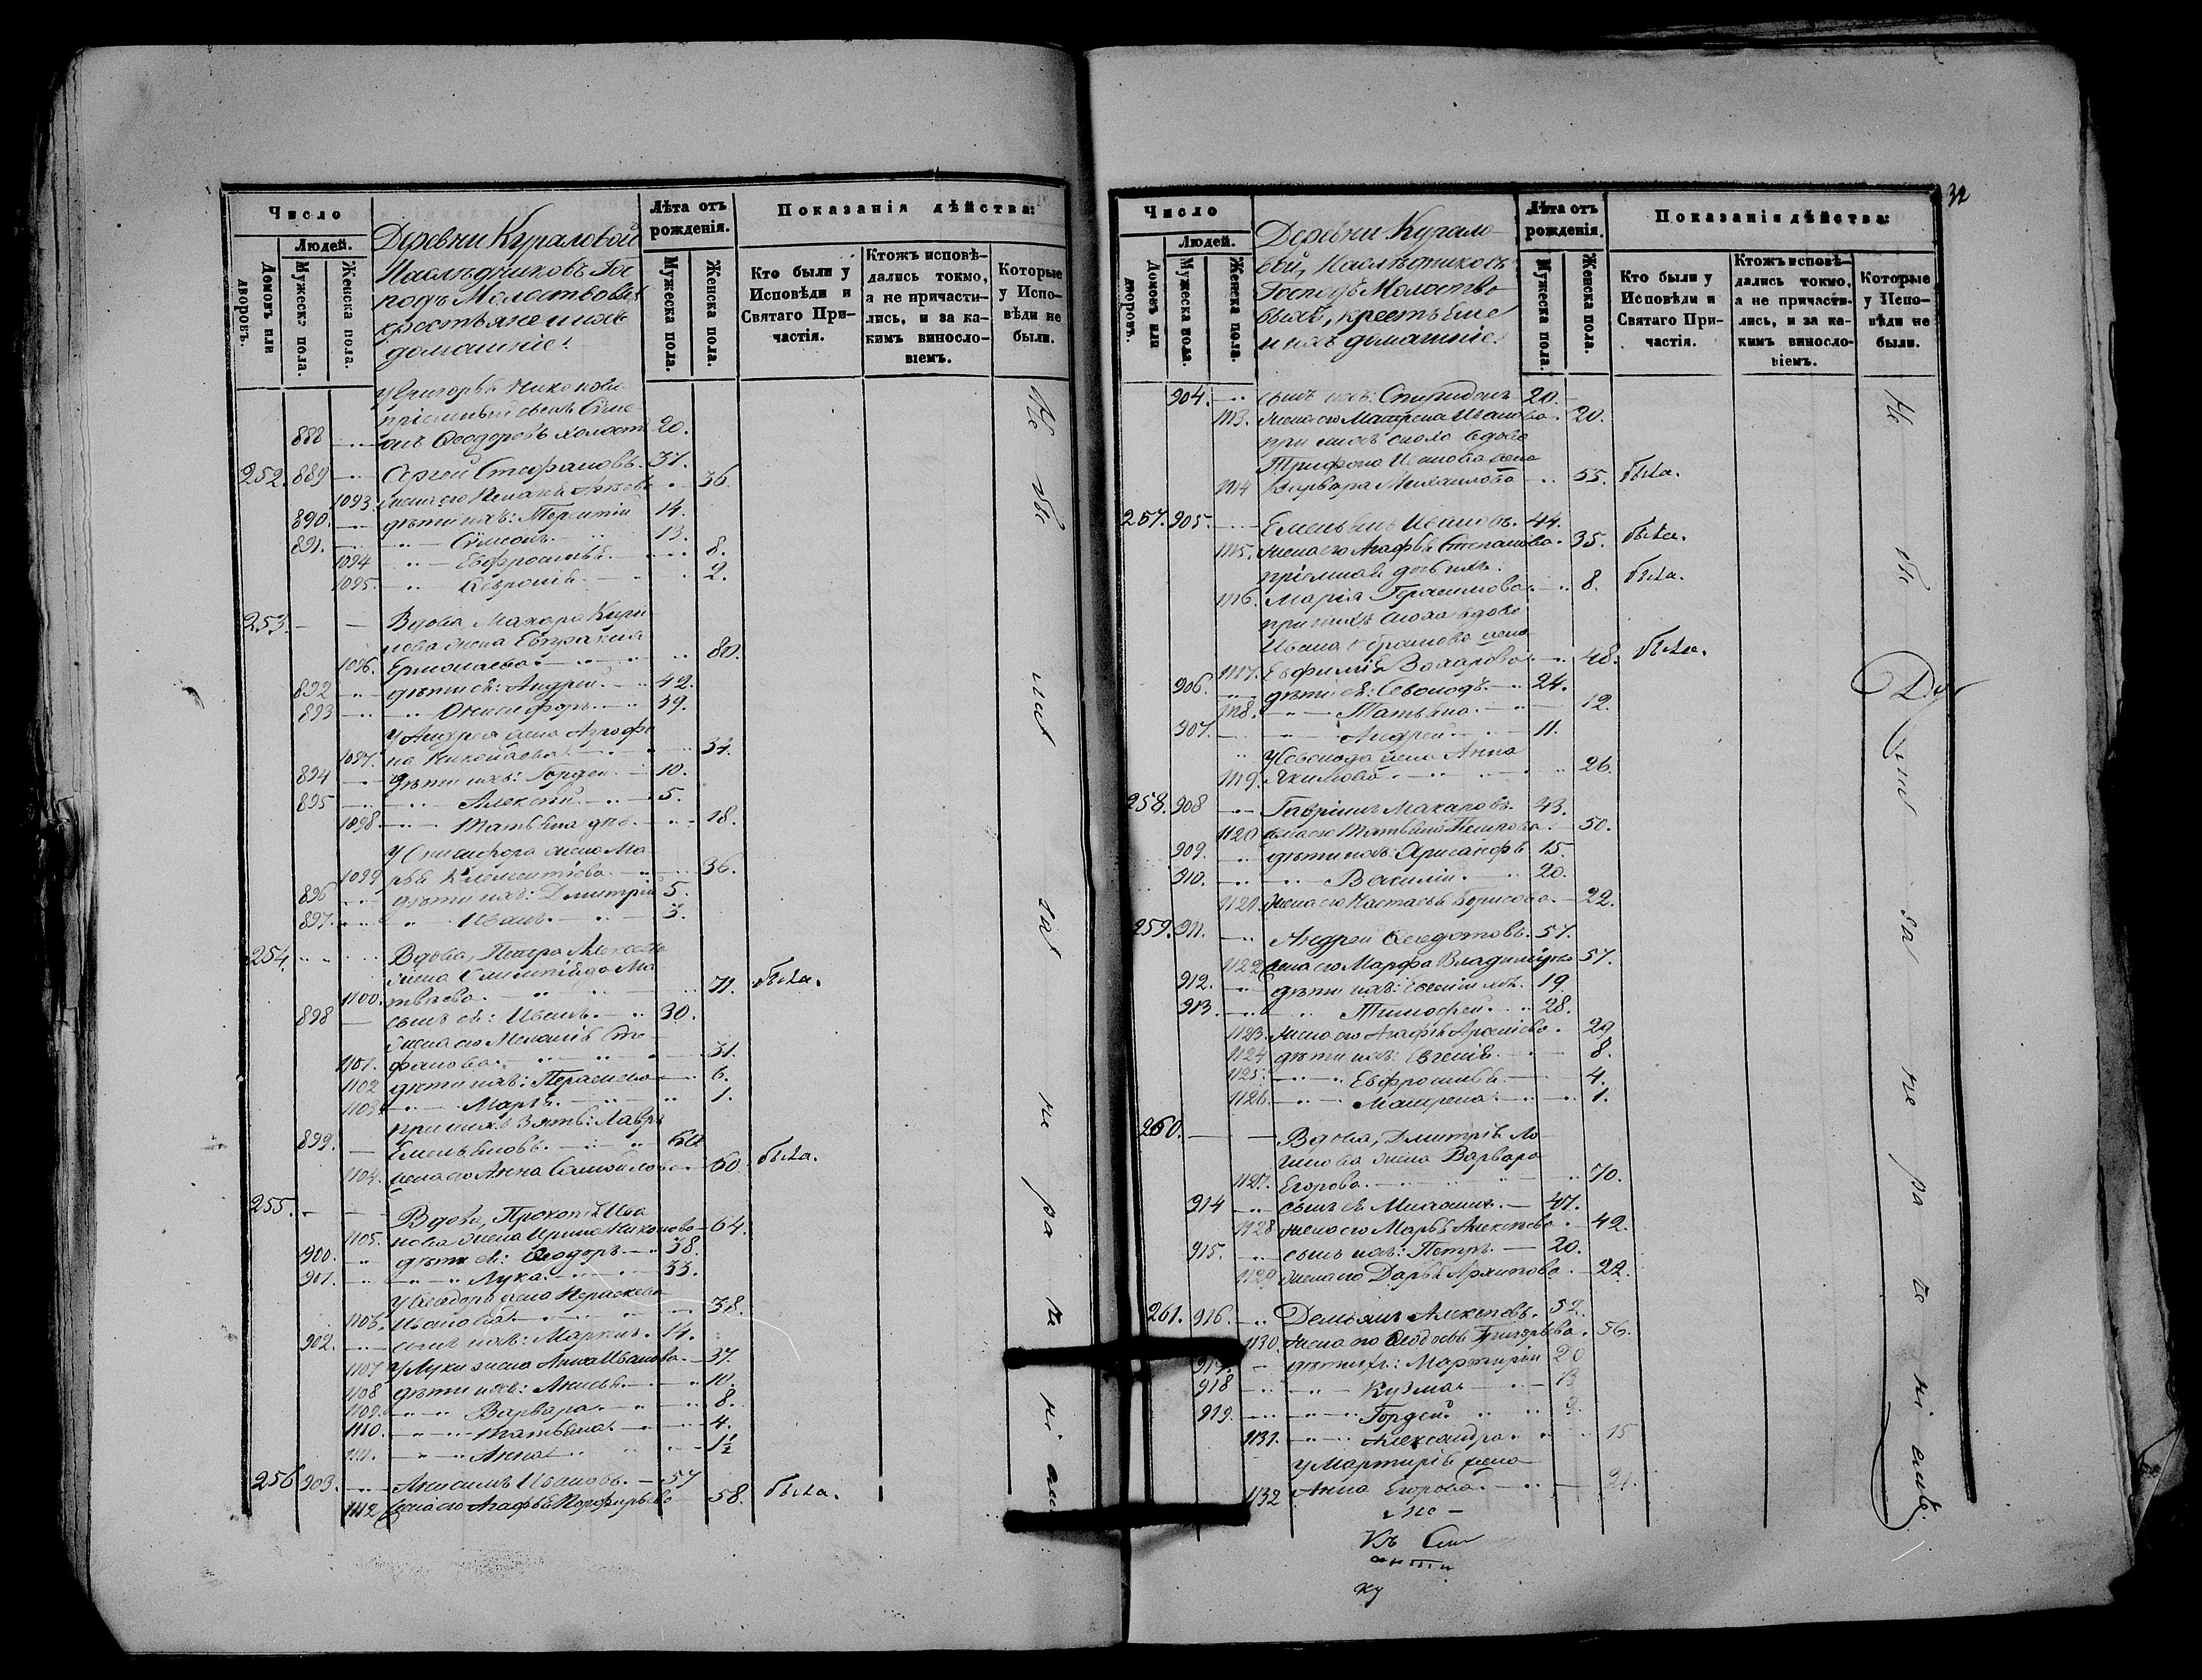 Число
Людей.
Домовъ или дворовъ.
Мужеска пола.
Женска пола.
Деревни Кураловой
Наслѣдниковъ Гос
подъ Молоствовыхъ
крестьяне и ихъ
домашніе:
Лѣта отъ рожденія.
Мужеска пола.
Женска пола.
Показанія дѣйства:
Кто были у Исповѣди и Святаго Причастія.
Ктожъ исповѣ-
дались токмо,
а не причасти-
лись, и за ка-
кимъ винosло-
віемъ.
Которые
у Испо-
вѣди не
были.
У Григорья
пріемный сынъ Симе
888 онъ Ѳеодоровъ холостъ 20.
252. 889 Сергей Стефановъ. 37.
1093. жена его 36.
890. дѣти ихъ: Терентій 14.
891. Симеонъ 13.
1094 Евфросинья 8.
1095. 2.
253. Вдова Макара Кири
лова жена Евпраксія
1096. Ермолаева 80.
892 дѣти ея: Андрей 42.
893 Онисифоръ 39.
У Андрея жена Агрофе
1097. на Николаева
894 дѣти ихъ: Гордей 10.
895 Алексѣй 5.
1098. Татьяна 18.
У Онисифора жена Ма
1099 рья Клементіева 36.
896 дѣти ихъ: Дмитрій 5.
897. Иванъ 3.
254. Вдова, Петра Алексѣева
жена Ма
1100. твѣева. 71. была.
898 сынъ ея: Иванъ 30.
жена его Меланія Сте
1101. фанова 31.
1102 дѣти ихъ: Параскева 6.
1103. Марѳа 1.
при нихъ зять: Лавръ
899. Емельяновъ. 60
1104. жена его Анна Самойлова 60. была.
255. Вдова, Прокопья Ива
1105. нова жена Ирина Никонова 64.
900. дѣти ея: Ѳеодоръ 38.
901. Лука 33.
У Ѳеодора жена Параскева
1106. Иванова 38.
902. сынъ ихъ: Маркелъ. 14.
1107 У Луки жена Анна Иванова 37.
1108 дѣти ихъ: Анисья 10.
1109. Варвара 8.
1110. Татьяна 4.
1111. Анна 1½
256 903. Анисимъ Ивановъ. 57
1112 жена его Агафья Порфирьева 58. была.
Не бы ли за не ра че ні ем
32
Число
Людей.
Домовъ или дворовъ.
Мужеска пола.
Женска пола.
Деревни Курало
вой, Наслѣдниковъ
Господъ Молоство
выхъ, крестьяне
и ихъ домашніе
Лѣта отъ рожденія.
Мужеска пола.
Женска пола.
Показанія дѣйства:
Кто были у Исповѣди и Святаго Причастія.
Ктожъ исповѣ-
дались токмо,
а не причасти-
лись, и за ка-
кимъ винosло-
віемъ.
Которые
у Испо-
вѣди не
были.
904. сынъ ихъ: Спиридонъ 20.
1113. жена его Матрена Иванова 20.
при нихъ сноха вдова
Трифона Иванова жена
1114 Варвара Михайлова 55. была.
257. 905. Емельянъ Ивановъ. 44.
1115. жена его Агафья Степанова 35. была.
пріемная дочь ихъ
1116. Марія Герасимова 8. была.
при нихъ сноха вдова
Ивана жена
1117. Евфимія Захарова 48. была.
906. дѣти ея: 24.
1118. Татьяна 12.
907. Андрей 11.
жена Анна
1119. Якимова 26.
258. 908 Гавріилъ Макаровъ. 43.
1120 жена его Татьяна Петрова 50.
909. дѣти ихъ: Хрисанфъ 15.
910. Василій 20.
1121. жена его Настасья Борисова 22.
259. 911. Андрей Ѳедотовъ. 57.
1122 жена его Марфа Владимірова 57.
912. дѣти ихъ: 19.
913. Тимофей 28.
1123. жена его Агафья Арсеніева 29
1124 дѣти ихъ: Евгенія 8.
1125. Евфросинья 4.
1126. Матрена 1.
260. Вдова, Дмитрія Ло
гинова жена Варвара
1127. Егорова 70.
914 сынъ ея 47.
1128 жена его Марья Алексѣева 42.
915. сынъ ихъ: Петръ 20.
1129 жена его Дарья Архипова 22.
261. 916. Демьянъ Алексѣевъ. 52.
1130. жена его Ѳедосья Григорьева 56.
917. дѣти их: Мартирій 20
918 Кузма 13
919. Гордей 9.
1131. Александра 15
У Мартирія жена
1132 Анна Егорова 21.
Не бы ли за не ра че ні емъ.